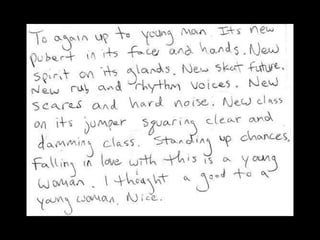 To again up to young man. Its new
pubert in its face and hands. New
spirit on its glands. New skat future.
New rub and rhythm voices. New
scares and hard noise. New class
on its jumper squaring clear and
damming class. Standing up chances.
Falling in love with this is a young
woman. I thought a good to a
young woman. Nice.